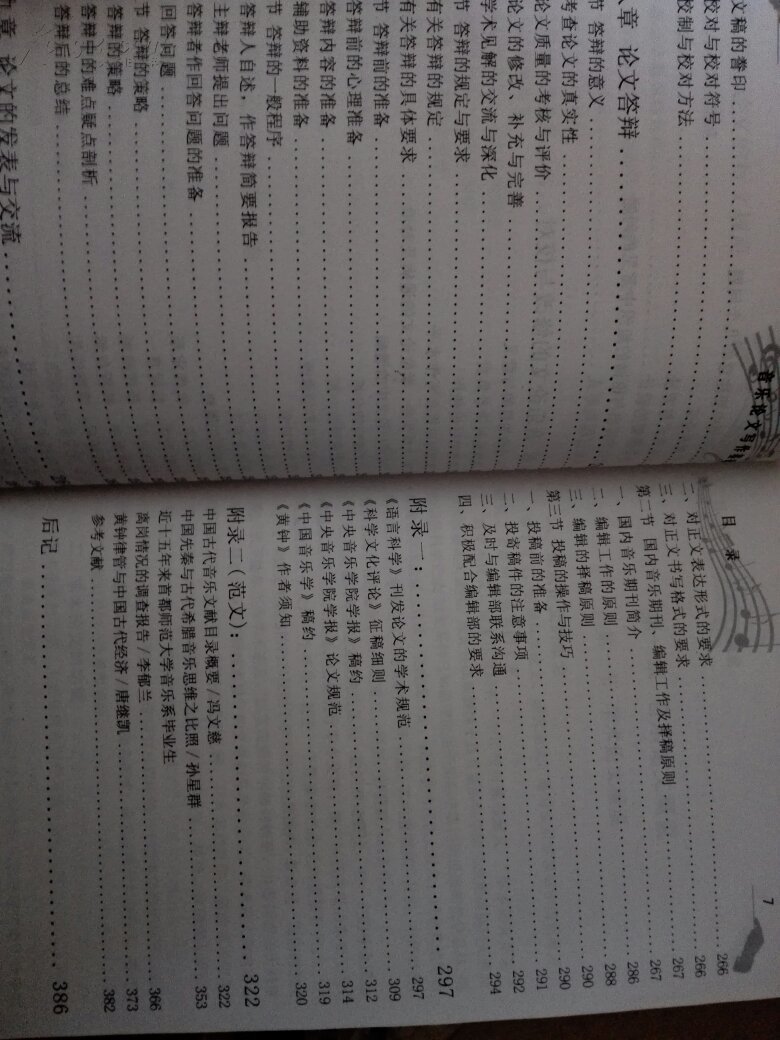 音乐论文写作
文稿的誊印
校对与校对符号
校制与校对方法
章 论文答辩
节 答辩的意义
考查论文的真实性
论文质量的考核与评价
论文的修改、补充与完善
学术见解的交流与深化
节 答辩的规定与要求
有关答辩的规定
有关答辩的具体要求
节 答辩前的准备
答辩前的心理准备
答辩内容的准备
辅助资料的准备
节 答辩的一般程序
答辩人自述,作答辩简要报告
主辩老师提出问题
答辩者作回答问题的准备
回答问题
节 答辩的策略
答辩的策略
答辩中的难点疑点剖析
答辩后的总结
章 论文的发表与交流
目 录
7
二、对正文表达形式的要求 266
三、对正文书写格式的要求 266
第二节 国内音乐期刊、编辑工作及择稿原则 267
一、国内音乐期刊简介 267
二、编辑工作的原则 286
三、编辑的择稿原则 288
第三节 投稿的操作与技巧 290
一、投稿前的准备 290
二、投寄稿件的注意事项 291
三、及时与编辑部联系沟通 292
四、积极配合编辑部的要求 294
附录一: 297
《语言科学》刊发论文的学术规范 297
《科学文化评论》征稿细则 309
《中央音乐学院学报》稿约 312
《中央音乐学院学报》论文规范 314
《中国音乐学》稿约 319
《黄钟》作者须知 320
附录二(范文): 322
中国古代音乐文献目录概要/冯文慈 322
中国先秦与古代希腊音乐思维之比照/孙星群 353
近十五年来首都师范大学音乐系毕业生
离岗情况的调查报告/李郁兰 366
黄钟律管与中国古代经济/唐继凯 373
参考文献 382
后记 386